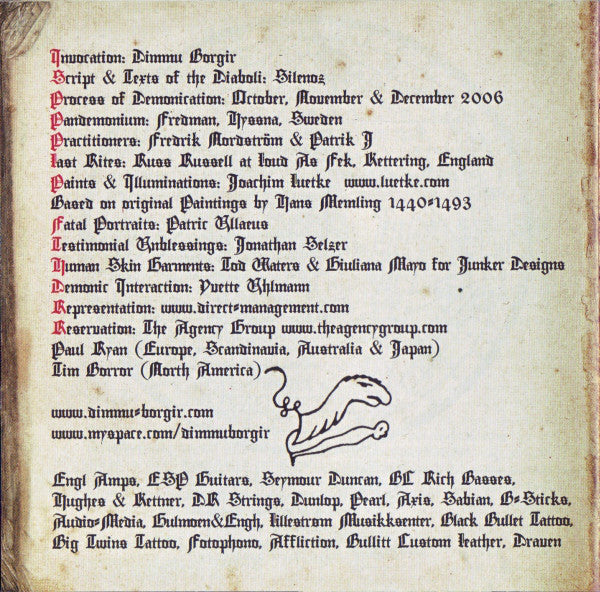 Invocation: Dimmu Borgir
Script & Texts of the Diaboli: Silenoz
Process of Demonication: October, November & December 2006
Pandemonium: Fredman, Hyssna, Sweden
Practitioners: Fredrik Nordström & Patrik J
Last Rites: Russ Russell at Loud As Fek, Kettering, England
Paints & Illuminations: Joachim Luetke www.luetke.com
Based on original Paintings by Hans Memling 1440-1493
Fatal Portraits: Patric Ullaeus
Testimonial Unblessings: Jonathan Selzer
Human Skin Garments: Tod Waters & Giuliana Mayo for Junker Designs
Demonic Interaction: Yvette Uhlmann
Representation: www.direct-management.com
Reservation: The Agency Group www.theagencygroup.com
Paul Ryan (Europe, Scandinavia, Australia & Japan)
Tim Borror (North America)
www.dimmu-borgir.com
www.myspace.com/dimmuborgir
Engl Amps, ESP Guitars, Seymour Duncan, BC Rich Basses,
Hughes & Kettner, DR Strings, Dunlop, Pearl, Axis, Sabian, G-Sticks,
Audio-Media, Gulmoen&Engh, Lillestrøm Musikksenter, Black Bullet Tattoo,
Big Twins Tattoo, Fotophono, Affliction, Bullitt Custom Leather, Draven